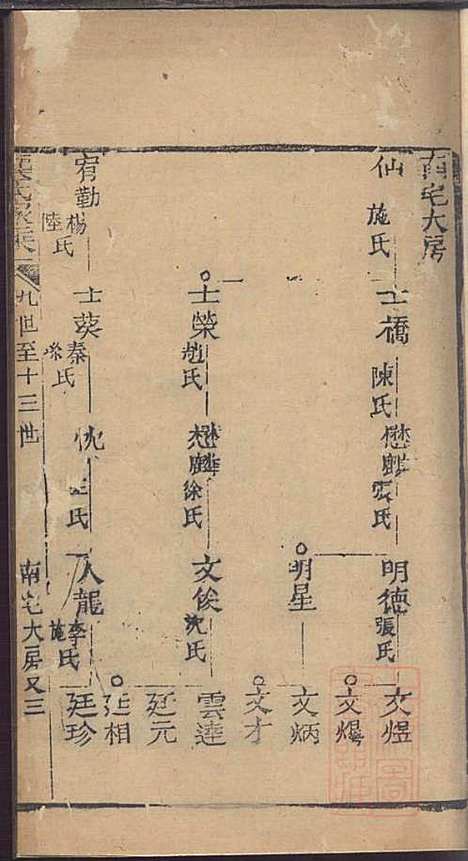 南宅大房
仙 施氏
士橋 陳氏
懋麟
明德 張氏
文煜
文煬
明星
文炳
文才
士榮 趙氏
懋麟 徐氏
文俟 沈氏
雲達
廷元
廷相
宥勤 楊氏 陸氏
士葵 秦氏
忱 氏
人龍 李氏 施
廷珍
九世至十三世
南宅大房又三